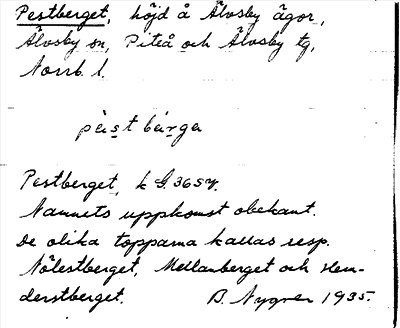 Pestberget, höjd å Älvsby ägor,
Älvsby sn, Piteå och Älvsby tg,
Norrb. l.
pæ̀st bárga
Pestberget, k G. 365 v.
Namnets uppkomst obekant.
De olika topparna kallas resp.
Nölestberget, Mellanberget och Hem-
derstberget. B. Nygren 1935.